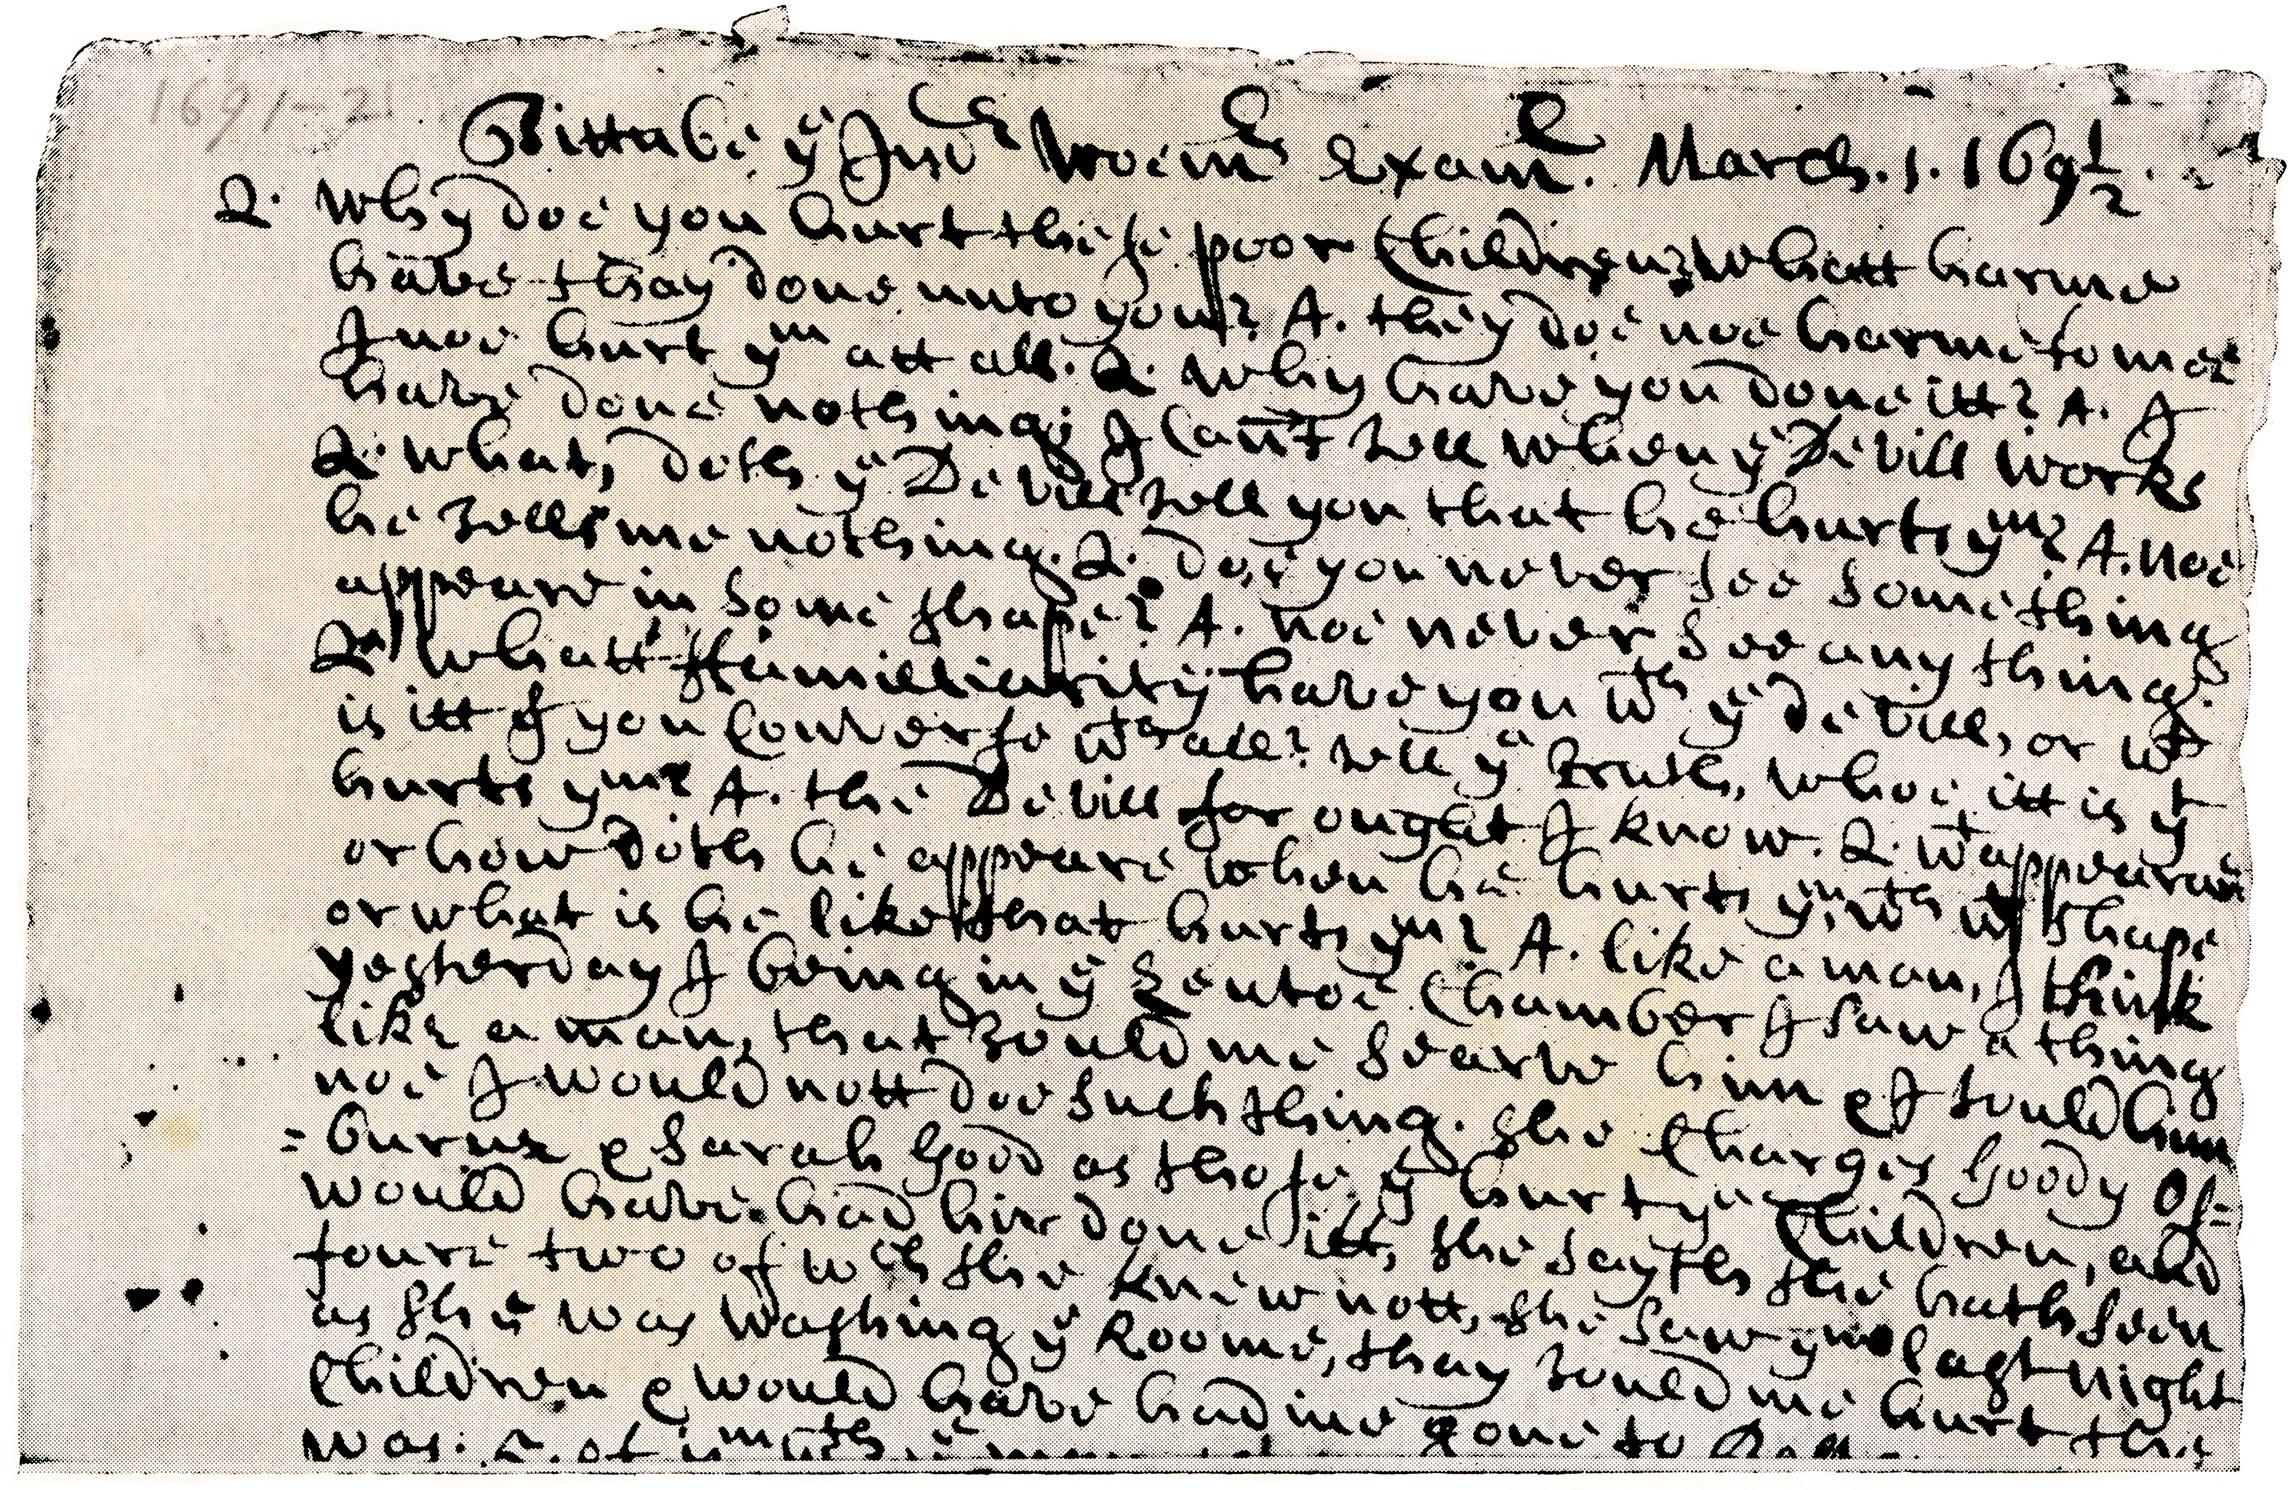 1691-2
Tittube yͤ Indⁿ Woemⁿˢ Examⁿ. March. 1. 169½.
Q. why doe you hurt these poor Children? whatt harme
have thay done unto you? A. they doe noe harme to mee
I noe hurt yᵐ att all. Q. why have you done itt? A. I
have done nothing; I Can't tell when yͤ Devill works
Q. what, doth yͤ Devill tell you that he hurts yᵐ? A. noe
he tells me nothing. Q. doe you never see something
appeare in some shape? A. noe never see any thing.
Q. whatt familliarity have you wᵗʰ yͤ devill, or wᵗ
is itt yͭ you Converse wᵗʰ all? tell yͤ truth, whoe itt is yᵗ
hurts yᵐ? A. the Devill for ought I know. Q. wᵗ appearanc
or how doth he appeare when he hurts yᵐ, wᵗʰ wᵗ shape
or what is he like that hurts yᵐ? A. like a man, I think
yesterday I being in yͤ Lentoe Chamber I saw a thing
like a man, that tould me searve him & I tould him
noe I would nott doe such thing. she charges Goody Os=
=burne & Sarah Good as those yͭ hurt yͤ Children, and
would have had hir done itt, she sayth she hath seen
foure two of wᶜʰ she knew nott, she saw yᵐ last night
as she was washing yͤ Roome, thay tould me hurt the
Children & would have had me gone to
was. 5. of yᵐ wᵗʰ yͤ